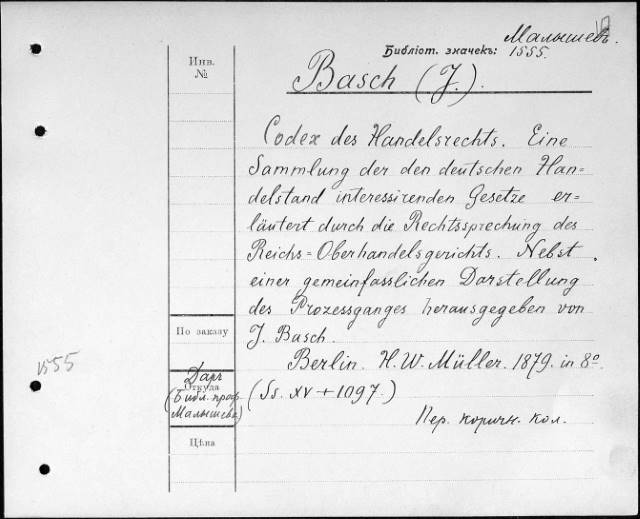 Малышевъ.
Библіот. значекъ: 1555.
Инв.
№
Basch (J.).
Codex des Handelsrechts. Eine
Sammlung der den deutschen Han=
delstand interessirenden Gesetze er=
läutert durch die Rechtssprechung des
Reichs=Oberhandelsgerichts. Nebst
einer gemeinfasslichen Darstellung
des Prozessganges herausgegeben von
J. Basch.
По заказу
Berlin. H. W. Müller. 1879. in 8º
1555
Даръ
Откуда
(Библ. проф.
Малышева)
(Ss. XV + 1097.)
Пер. коричн. кол.
Цѣна